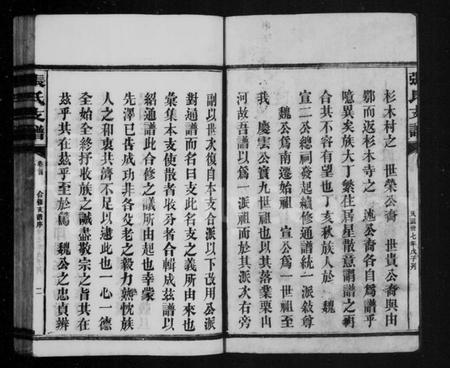 杉木村之　世榮公裔　世貴公裔與由
鄂而返杉木寺之　逵公裔各自爲譜乎
噫異矣族大丁繁住居星散意謂譜之再
合其不容有望也丁亥秋族人於　魏
宣二公總祠發起續修通譜統一派敍尊
魏公爲南遷始祖　宣公爲一世祖至
我　慶雲公實九世祖也以其落業栗山
河故吾譜以爲一派祖而於其派次右旁
副以世次復自本支合派以下改用公派
對通譜而名曰支此名支之義所由來也
彙集本支使散者收分者合輯成茲譜以
紹通譜此合修之議所由起也幸蒙
先澤已告成功非各父老之毅力熱忱族
人之和衷共濟不足以逮此也一心一德
全始全終抒收族之誠盡敬宗之旨其在
茲乎其在茲乎至於爲　魏公之忠貞辨
張氏支譜
卷首
合修支譜序
二
張氏支譜